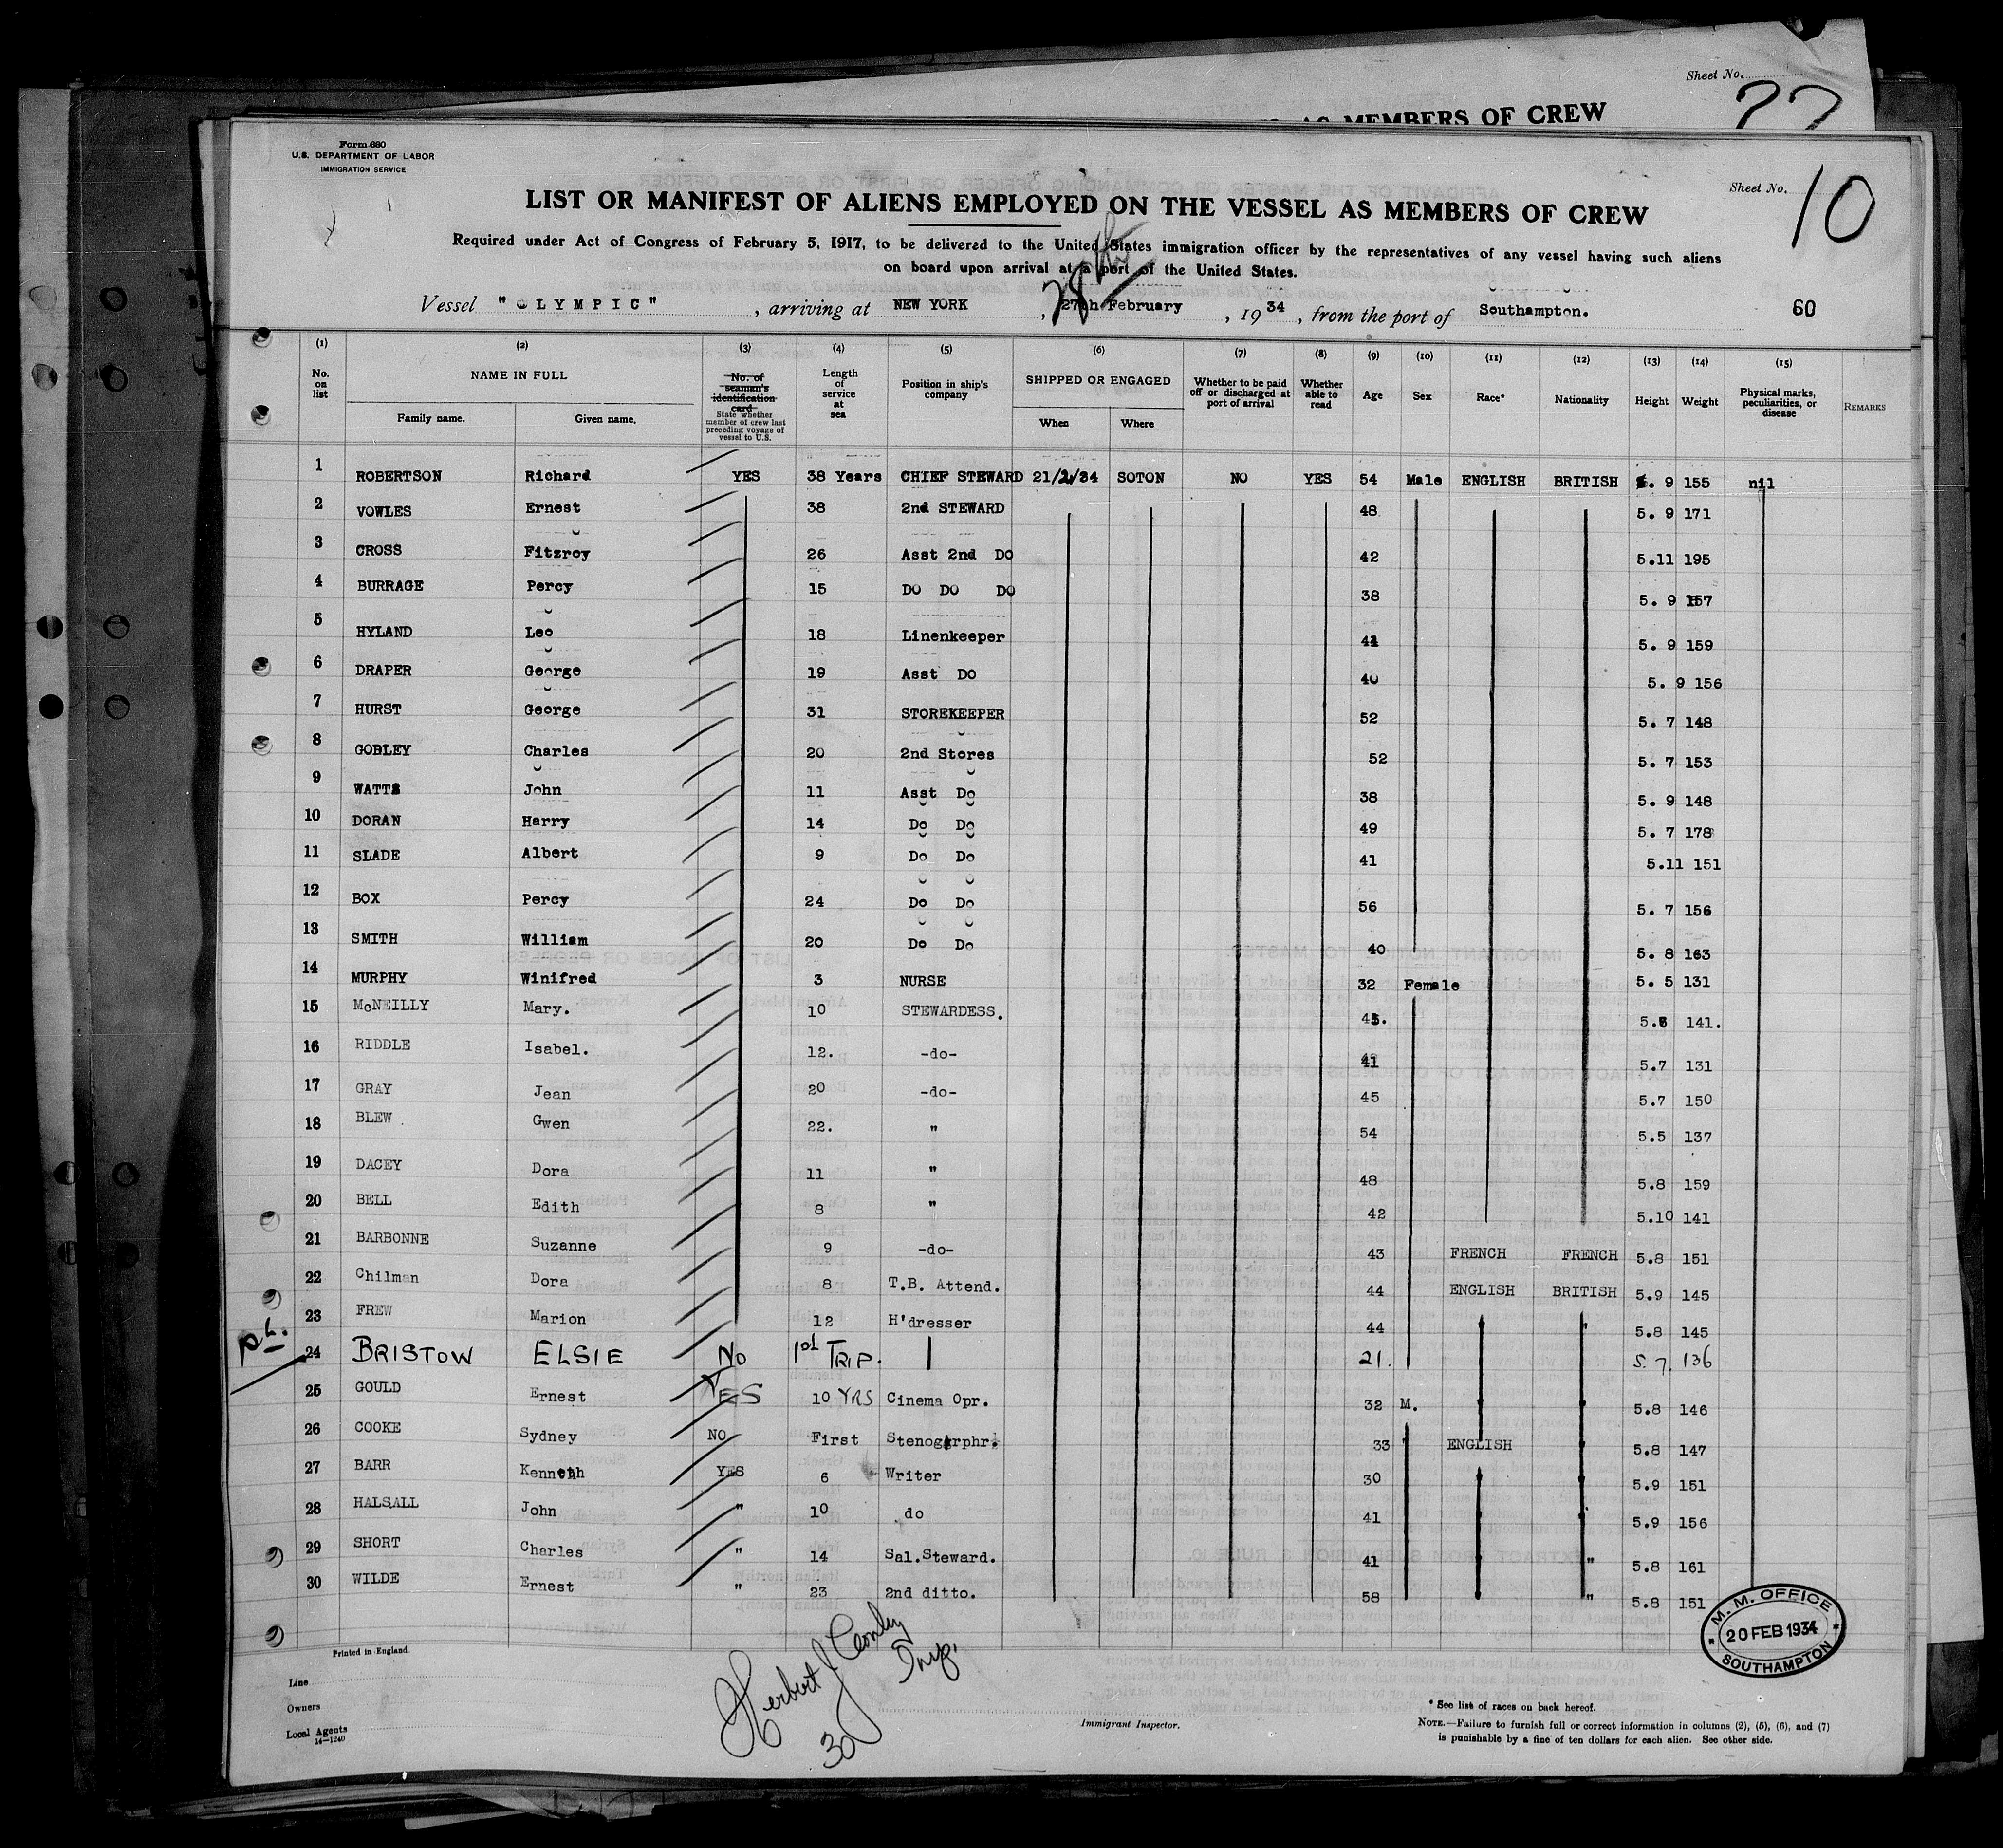 Sheet No.
22
AS MEMBERS OF CREW
Form 680
U.S. DEPARTMENT OF LABOR
IMMIGRATION SERVICE
Sheet No. 10
LIST OR MANIFEST OF ALIENS EMPLOYED ON THE VESSEL AS MEMBERS OF CREW
Required under Act of Congress of February 5, 1917, to be delivered to the United States immigration officer by the representatives of any vessel having such aliens
on board upon arrival at a port of the United States.
28th
Vessel "OLYMPIC", arriving at NEW YORK, 27th February, 1934, from the port of Southampton. 60
(1) (2) (3) (4) (5) (6) (7) (8) (9) (10) (11) (12) (13) (14) (15)
No. on list NAME IN FULL Family name. Given name. No. of seaman's identification card State whether member of crew last preceding voyage of vessel to U.S. Length of service at sea Position in ship's company SHIPPED OR ENGAGED When Where Whether to be paid off or discharged at port of arrival Whether able to read Age Sex Race* Nationality Height Weight Physical marks, peculiarities, or disease REMARKS
1 ROBERTSON Richard YES 38 Years CHIEF STEWARD 21/2/34 SOTON NO YES 54 Male ENGLISH BRITISH 5. 9 155 nil
2 VOWLES Ernest 38 2nd STEWARD 48 5. 9 171
3 CROSS Fitzroy 26 Asst 2nd DO 42 5.11 195
4 BURRAGE Percy 15 DO DO DO 38 5. 9 157
5 HYLAND Leo 18 Linenkeeper 41 5. 9 159
6 DRAPER George 19 Asst DO 40 5. 9 156
7 HURST George 31 STOREKEEPER 52 5. 7 148
8 GOBLEY Charles 20 2nd Stores 52 5. 7 153
9 WATTS John 11 Asst Do 38 5. 9 148
10 DORAN Harry 14 Do Do 49 5. 7 178
11 SLADE Albert 9 Do Do 41 5.11 151
12 BOX Percy 24 Do Do 56 5. 7 156
13 SMITH William 20 Do Do 40 5. 8 163
14 MURPHY Winifred 3 NURSE 32 Female 5. 5 131
15 McNEILLY Mary. 10 STEWARDESS. 45. 5.6 141.
16 RIDDLE Isabel. 12. -do- 41 5.7 131
17 GRAY Jean 20 -do- 45 5.7 150
18 BLEW Gwen 22. " 54 5.5 137
19 DACEY Dora 11 " 48 5.8 159
20 BELL Edith 8 " 42 5.10 141
21 BARBONNE Suzanne 9 -do- 43 FRENCH FRENCH 5.8 151
22 Chilman Dora 8 T.B. Attend. 44 ENGLISH BRITISH 5.9 145
23 FREW Marion 12 H'dresser 44 " 5.8 145
24 BRISTOW ELSIE NO 1st TRIP. 21. 5.7. 136
25 GOULD Ernest YES 10 YRS Cinema Opr. 32 M. 5.8 146
26 COOKE Sydney NO First Stenogrphr. 33 " ENGLISH 5.8 147
27 BARR Kenneth YES 6 Writer 30 5.9 151
28 HALSALL John " 10 do 41 5.9 156
29 SHORT Charles " 14 Sal.Steward. 41 " 5.8 161
30 WILDE Ernest " 23 2nd ditto. 58 " 5.8 151
M. M. OFFICE
20 FEB 1934
SOUTHAMPTON
Printed in England
Line
Owners
Local Agents
14—1240
Herbert J Conley
Insp.
30
Immigrant Inspector.
* See list of races on back hereof.
NOTE.—Failure to furnish full or correct information in columns (2), (5), (6), and (7)
is punishable by a fine of ten dollars for each alien. See other side.